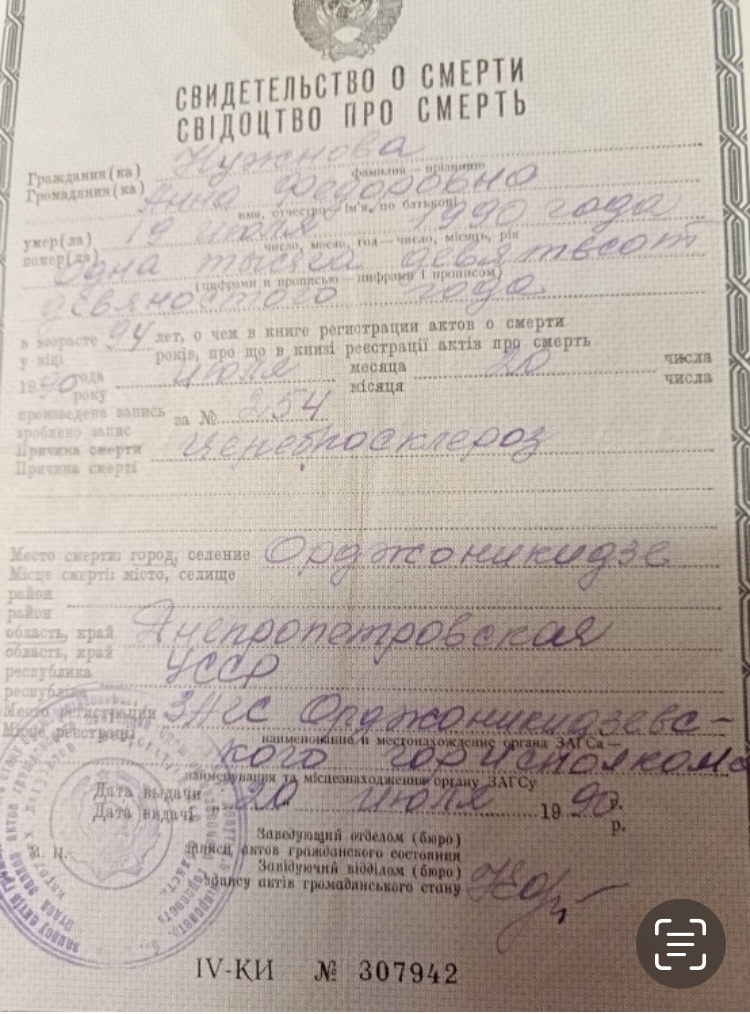 СВИДЕТЕЛЬСТВО О СМЕРТИ
СВІДОЦТВО ПРО СМЕРТЬ
Гражданин(ка) Нужнова
фамилия — прізвище
Громадянин(ка) Анна Федоровна
имя, отчество — ім'я, по батькові
умер(ла) 19 июля 1990 года
помер(ла) число, месяц, год — число, місяць, рік
одна тысяча девятьсот
(цифрами и прописью — цифрами і прописом)
девяностого года
в возрасте 94 лет, о чем в книге регистрации актов о смерти
у віці років, про що в книзі реєстрації актів про смерть
1990 года июля месяца 20 числа
року місяця числа
произведена запись за № 254
зроблено запис
Причина смерти церебросклероз
Причина смерті
Место смерти: город, селение Орджоникидзе
Місце смерті: місто, селище
район
район
область, край Днепропетровская
область, край
республика УССР
республіка
Место регистрации ЗАГС Орджоникидзевс-
Місце реєстрації наименование и местонахождение органа ЗАГСа —
кого горисполкома
найменування та місцезнаходження органу ЗАГСу
Дата выдачи „ 20 июля 1990 г.
Дата видачі р.
Заведующий отделом (бюро)
записи актов гражданского состояния
М. П. Завідуючий відділом (бюро)
запису актів громадянського стану
IV-КИ № 307942